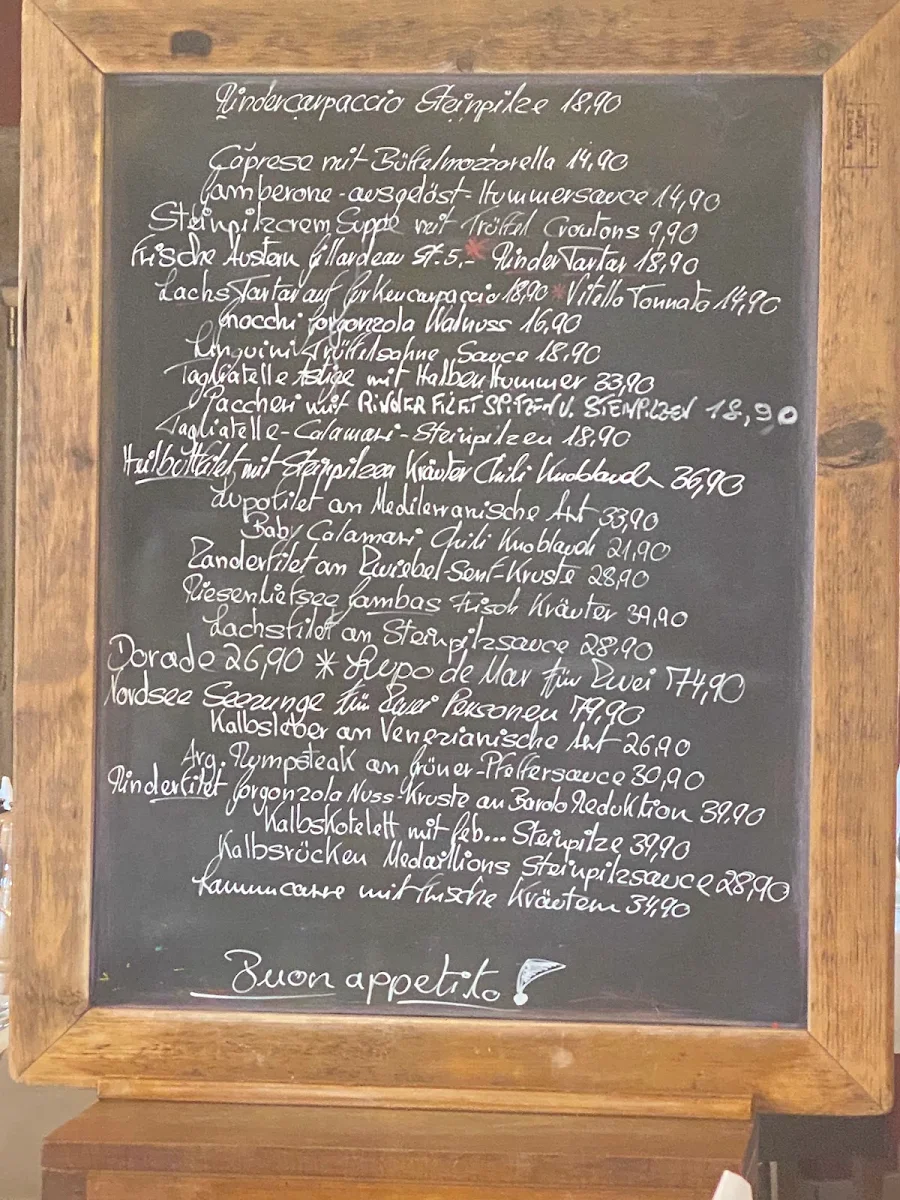 Rindercarpaccio Steinpilze 18,90
Caprese mit Büffelmozzarella 14,90
Gamberone-ausgelöst-Hummersauce 14,90
Steinpilzcrem Suppe mit Trüffel Croutons 9,90
Frische Austern Gillardeau St. 5,- * Rinder Tartar 18,90
Lachs Tartar auf Gurkencarpaccio 18,90 * Vitello Tonnato 14,90
Gnocchi Gorgonzola Walnuss 16,90
Linguini Trüffelsahne Sauce 18,90
Tagliatelle mit Halben Hummer 33,90
Paccheri mit RINDERFILETSPITZEN U. STEINPILZEN 18,90
Tagliatelle-Calamari-Steinpilzen 18,90
Heilbuttfilet mit Steinpilzen Kräuter Chili Knoblauch 36,90
Lupofilet an Mediterranische Art 33,90
Baby Calamari Chili Knoblauch 21,90
Zanderfilet an Zwiebel-Senf-Kruste 28,90
Riesentiefsee Gambas Frisch Kräuter 39,90
Lachsfilet an Steinpilzsauce 28,90
Dorade 26,90 * Lupo de Mar für Zwei 74,90
Nordsee Seezunge für Zwei Personen 79,90
Kalbsleber an Venezianische Art 26,90
Arg. Rympsteak an Grüner-Pfeffersauce 30,90
Rinderfilet Gorgonzola Nuss-Kruste an Barolo Reduktion 39,90
Kalbskotelett mit Geb... Steinpilze 39,90
Kalbsrücken Medaillions Steinpilzsauce 28,90
Lammcarre mit frische Kräutern 34,90
Buon appetito!